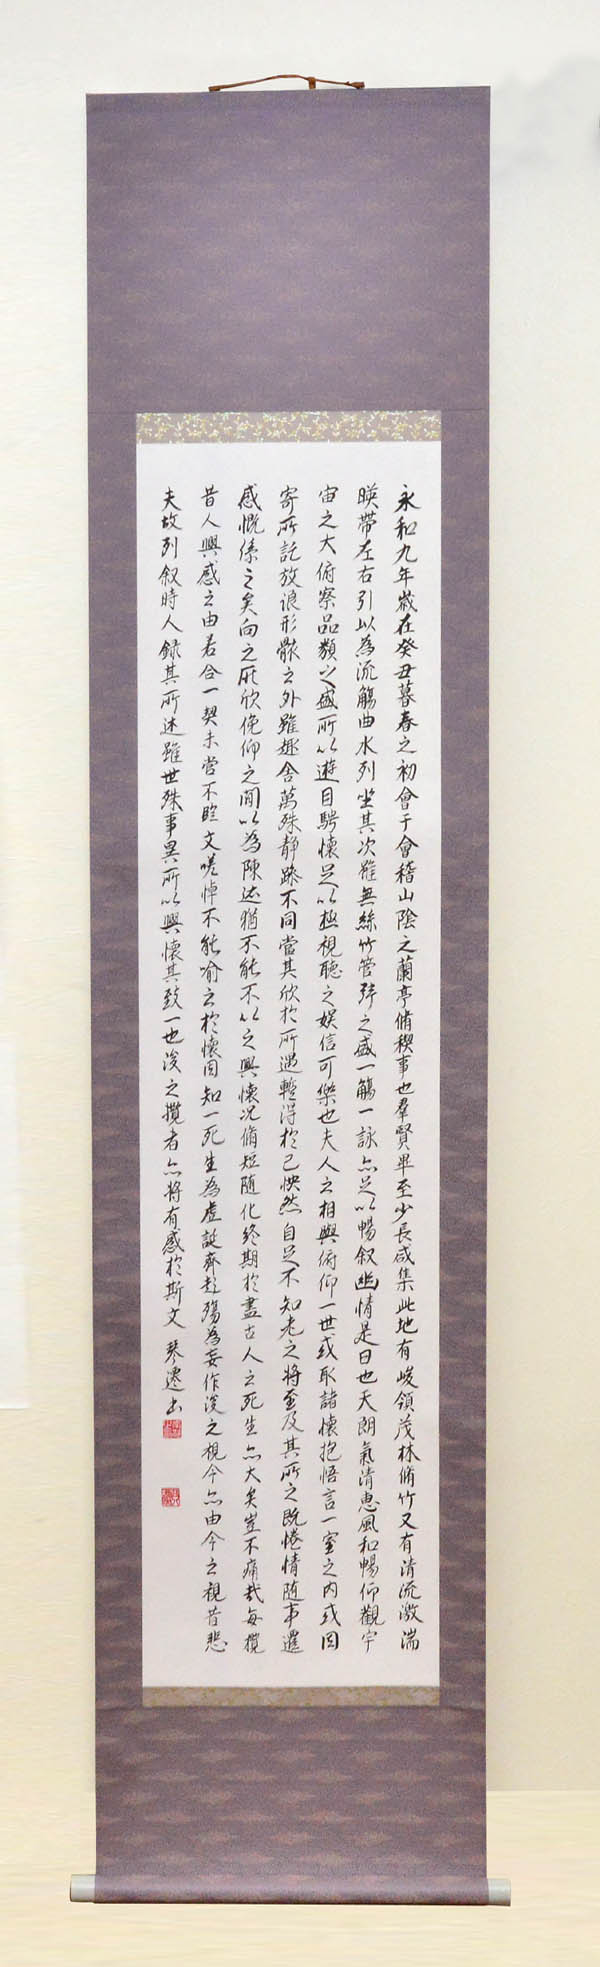 永和九年歲在癸丑暮春之初會于會稽山陰之蘭亭脩稧事也羣賢畢至少長咸集此地有峻領茂林脩竹又有清流激湍
暎帶左右引以為流觴曲水列坐其次雖無絲竹管弦之盛一觴一詠亦足以暢叙幽情是日也天朗氣清惠風和暢仰觀宇
宙之大俯察品類之盛所以遊目騁懷足以極視聽之娛信可樂也夫人之相與俯仰一世或取諸懷抱悟言一室之內或因
寄所託放浪形骸之外雖趣舍萬殊靜躁不同當其欣於所遇暫得於己怏然自足不知老之將至及其所之既惓情隨事遷
感慨係之矣向之所欣俛仰之間以為陳迹猶不能不以之興懷況脩短隨化終期於盡古人云死生亦大矣豈不痛哉每攬
昔人興感之由若合一契未嘗不臨文嗟悼不能喻之於懷固知一死生為虛誕齊彭殤為妄作後之視今亦由今之視昔悲
夫故列叙時人錄其所述雖世殊事異所以興懷其致一也後之攬者亦將有感於斯文 琴 書